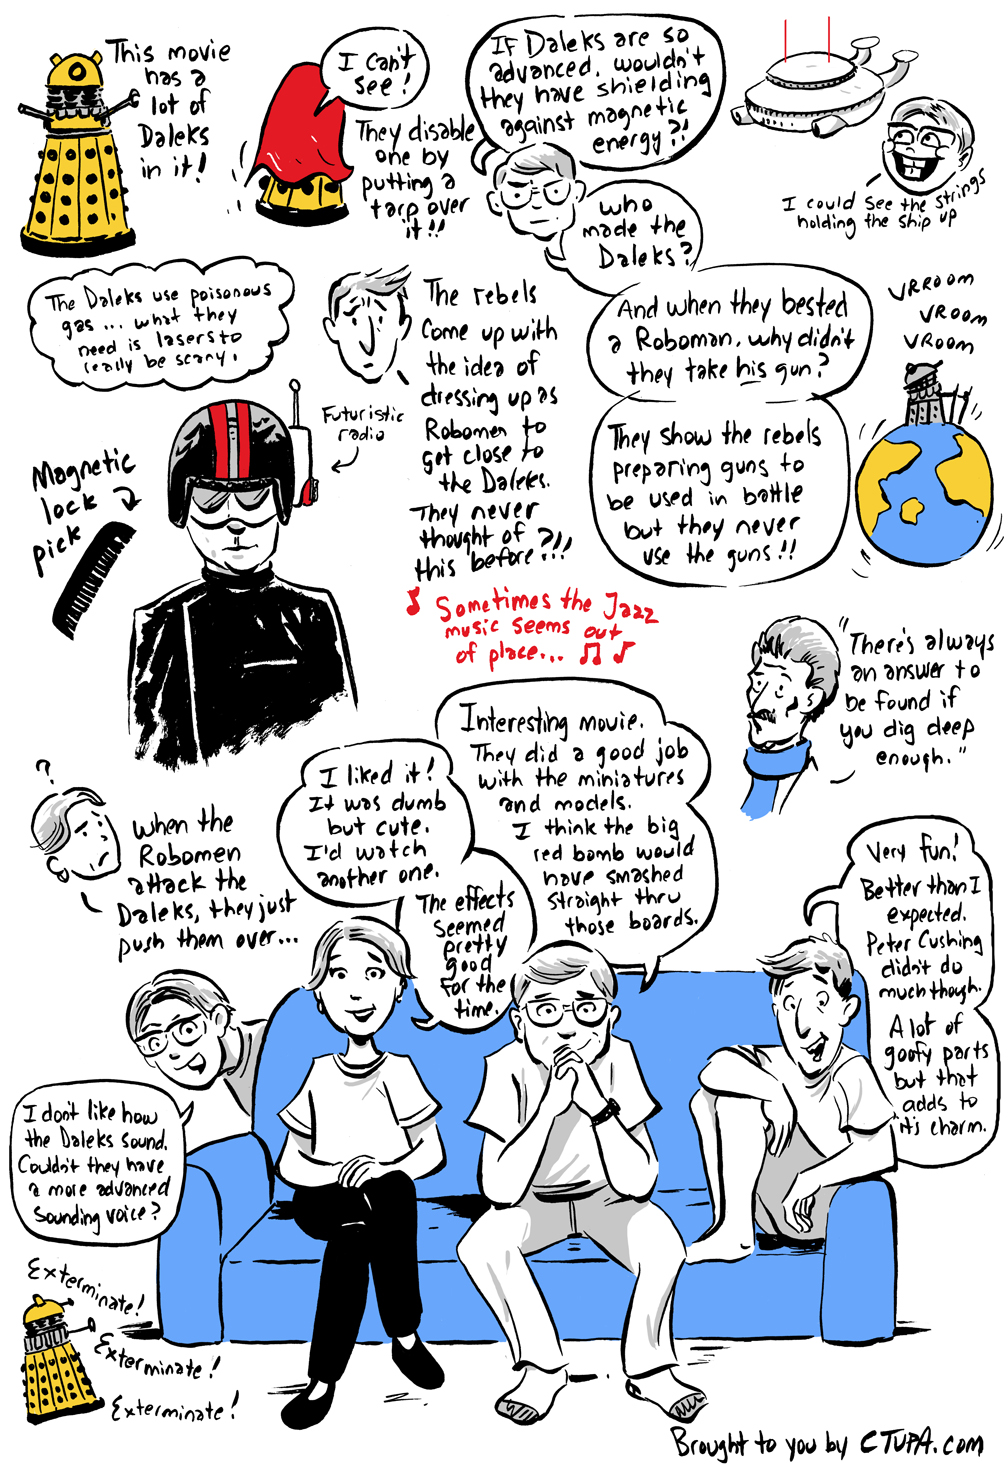 This movie
has a
lot of
Daleks
in it!
I can't
see!
They disable
one by
putting a
tarp over
it!!
If Daleks are so
advanced, wouldn't
they have shielding
against magnetic
energy?!
who
made the
Daleks?
I could see the strings
holding the ship up
The Daleks use poisonous
gas... what they
need is lasers to
really be scary.
The rebels
come up with
the idea of
dressing up as
Robomen to
get close to
the Daleks.
They never
thought of
this before?!!
And when they bested
a Roboman, why didn't
they take his gun?
They show the rebels
preparing guns to
be used in battle
but they never
use the guns!!
VRROOM
VROOM
VROOM
Magnetic
lock
pick
Futuristic
radio
Sometimes the Jazz
music seems out
of place...
"There's always
an answer to
be found if
you dig deep
enough."
?
when the
Robomen
attack the
Daleks, they just
push them over...
I liked it!
It was dumb
but cute.
I'd watch
another one.
The effects
seemed
pretty
good
for the
time.
Interesting movie.
They did a good job
with the miniatures
and models.
I think the big
red bomb would
have smashed
straight thru
those boards.
Very fun!
Better than I
expected.
Peter Cushing
didn't do
much though.
A lot of
goofy parts
but that
adds to
it's charm.
I don't like how
the Daleks sound.
Couldn't they have
a more advanced
sounding voice?
Exterminate!
Exterminate!
Exterminate!
Brought to you by CTUPA.com